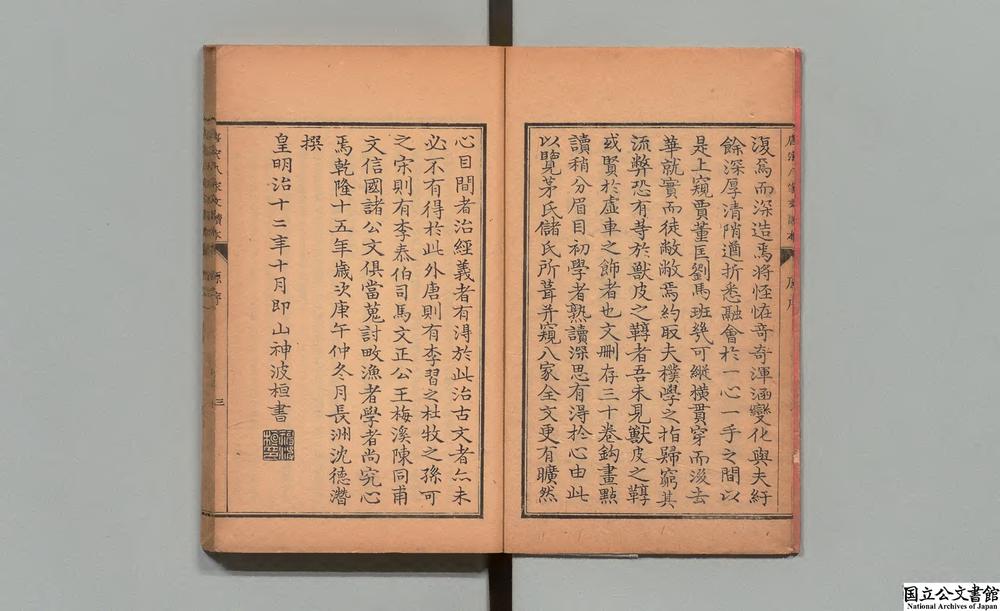 復焉而深造焉將怪怪奇奇渾涵變化與夫紆
餘深厚清陗遒折悉融會於一心一手之間以
是上窺賈董匡劉馬班幾可縱橫貫穿而後去
華就實而徒敝敝焉約取夫樸學之指歸窮其
流弊恐有等於獸皮之鞟者吾未見獸皮之鞟
或賢於虛車之飾者也文刪存三十卷鈎畫點
讀稍分眉目初學者熟讀深思有淂於心由此
以覽茅氏儲氏所葺并窺八家全文更有曠然
心目間者治經義者有淂於此治古文者亦未
必不有得於此外唐則有李習之杜牧之孫可
之宋則有李泰伯司馬文正公王梅溪陳同甫
文信國諸公文俱當蒐討畋漁者學者尚究心
焉乾隆十五年歲次庚午仲冬月長洲沈德潛
撰
皇明治十二年十月即山神波桓書
唐宋八家文讀本
原序
三
国立公文書館
National Archives of Japan